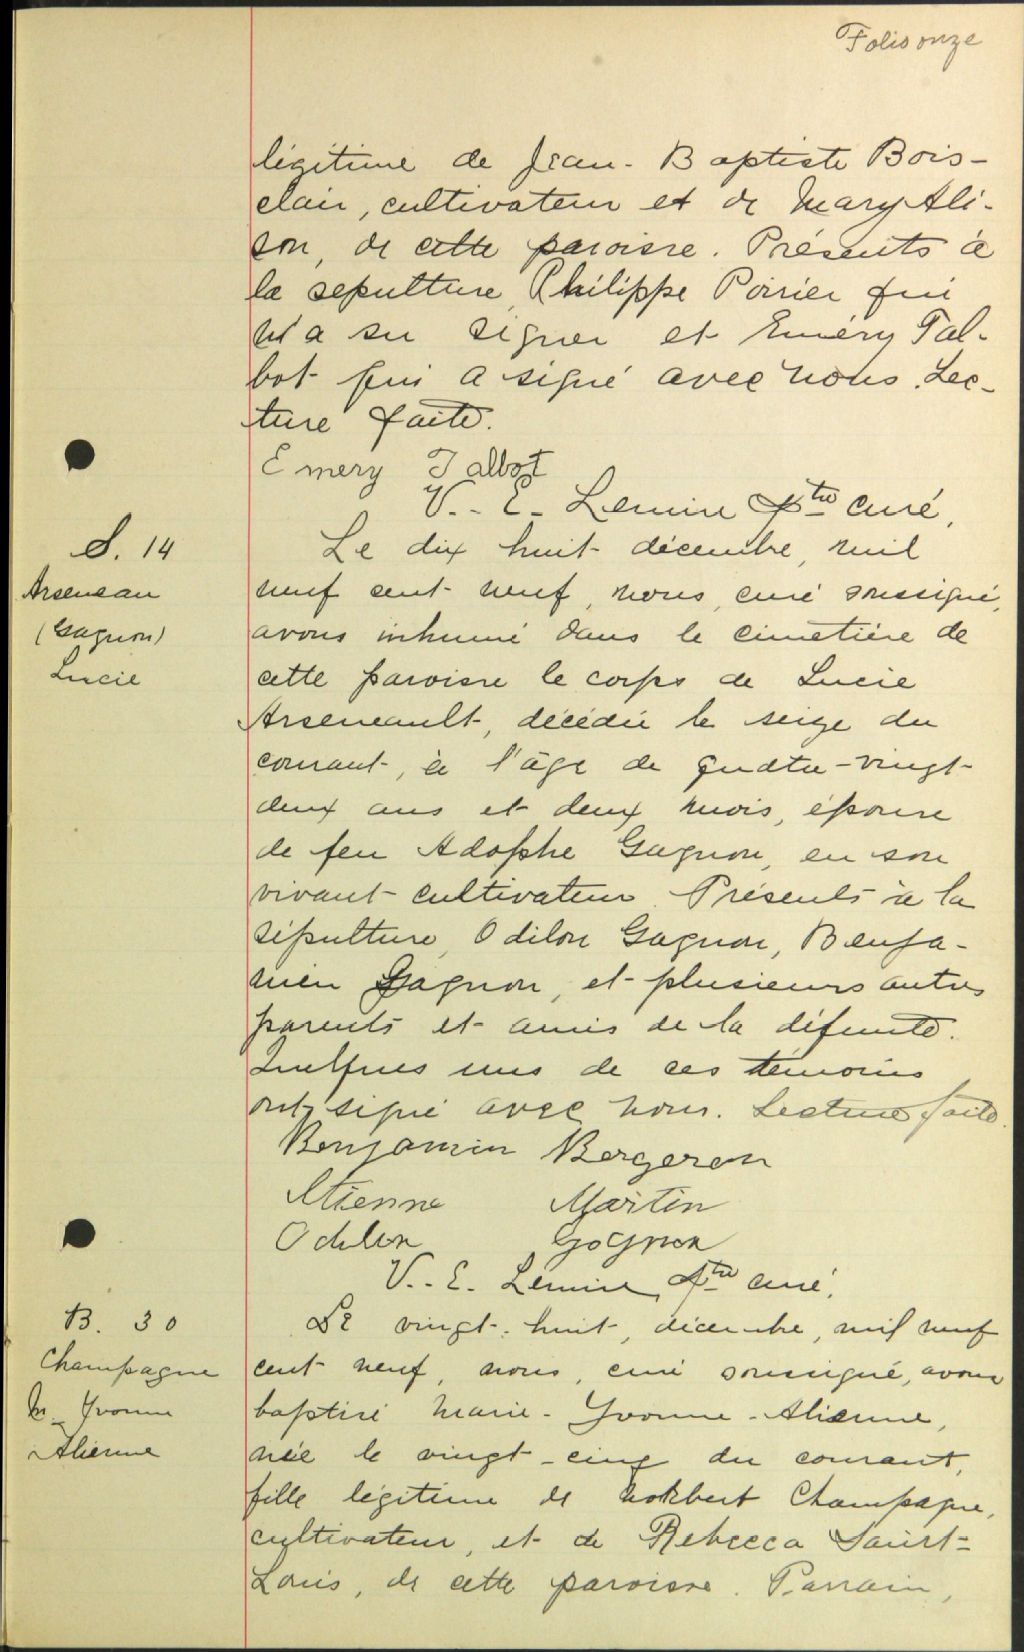 Folio onze
légitime de Jean-Baptiste Bois-
clair, cultivateur et de Mary Ali-
son, de cette paroisse. Présents à
la sepulture, Philippe Poirier qui
n'a su signer et Emery Tal-
bot qui a signé avec nous. Lec-
ture faite.
Emery Talbot
V.-E. Lemire Ptre curé,
S. 14
Arseneau
(Gagnon)
Lucie
Le dix huit décembre, mil
neuf cent neuf, nous, curé soussigné,
avons inhumé dans le cimetière de
cette paroisse le corps de Lucie
Arseneault, décédée le seize du
courant, à l'âge de quatre-vingt-
deux ans et deux mois, épouse
de feu Adolphe Gagnon, en son
vivant cultivateur. Présents à la
sépulture, Odilon Gagnon, Benja-
min Gagnon, et plusieurs autres
parents et amis de la défunte.
Quelques uns de ces témoins
ont signé avec nous. Lecture faite.
Benjamin Bergeron
Etienne Martin
Odilon Gagnon
V.-E. Lemire, Ptre curé.
B. 30
Champagne
M. Yvonne
Alienne
Le vingt-huit, décembre, mil neuf
cent neuf, nous, curé soussigné, avons
baptisé Marie-Yvonne-Alienne,
née le vingt-cinq du courant,
fille légitime de Norbert Champagne,
cultivateur, et de Rebecca Saint-
Louis, de cette paroisse. Parrain,